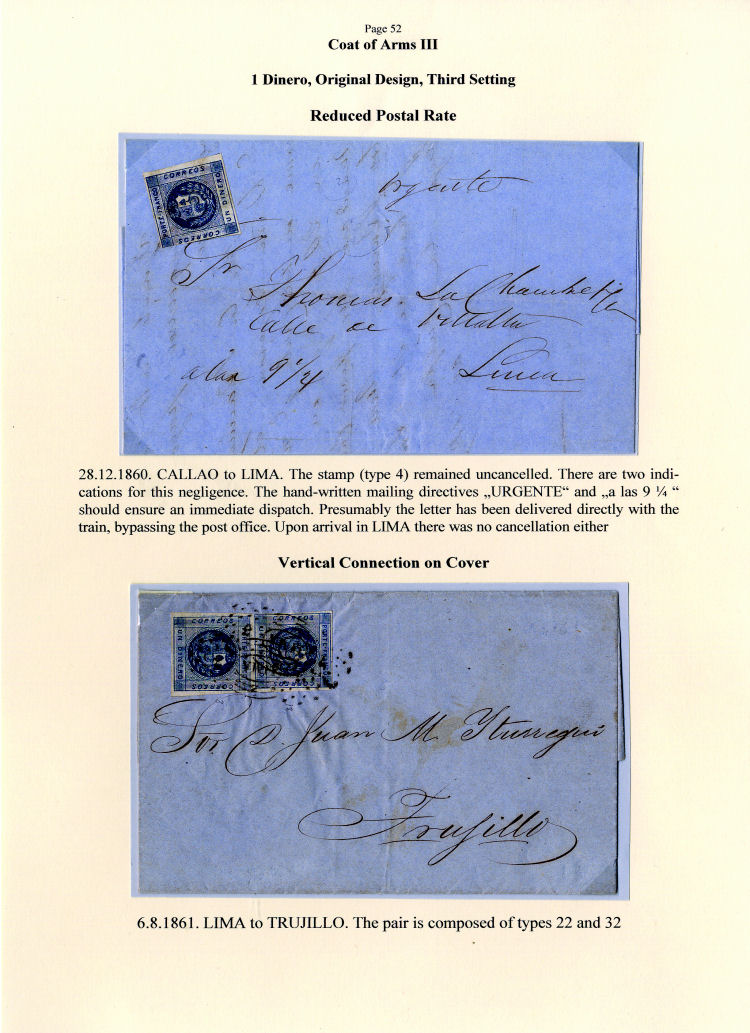 Page 52
Coat of Arms III
1 Dinero, Original Design, Third Setting
Reduced Postal Rate
CORREOS
PORTE FRANCO
UN DINERO
CORREOS
Urgente
Sr
Thomas La Chambre
Calle de
a las 9 1/4
Lima
28.12.1860. CALLAO to LIMA. The stamp (type 4) remained uncancelled. There are two indi-
cations for this negligence. The hand-written mailing directives „URGENTE“ and „a las 9 ¼ “
should ensure an immediate dispatch. Presumably the letter has been delivered directly with the
train, bypassing the post office. Upon arrival in LIMA there was no cancellation either
Vertical Connection on Cover
CORREOS
UN DINERO
CORREOS
CORREOS
Sor. D. Juan M. Yturregui
Trujillo
6.8.1861. LIMA to TRUJILLO. The pair is composed of types 22 and 32